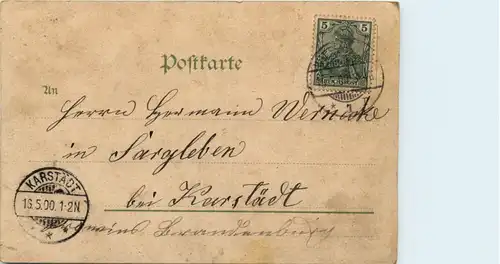 5 5
Postkarte
An
Herrn Hermann Wernicke
in Sargleben
bei Karstädt
KARSTÄDT
16.5.00.1-2N
Brandenburg